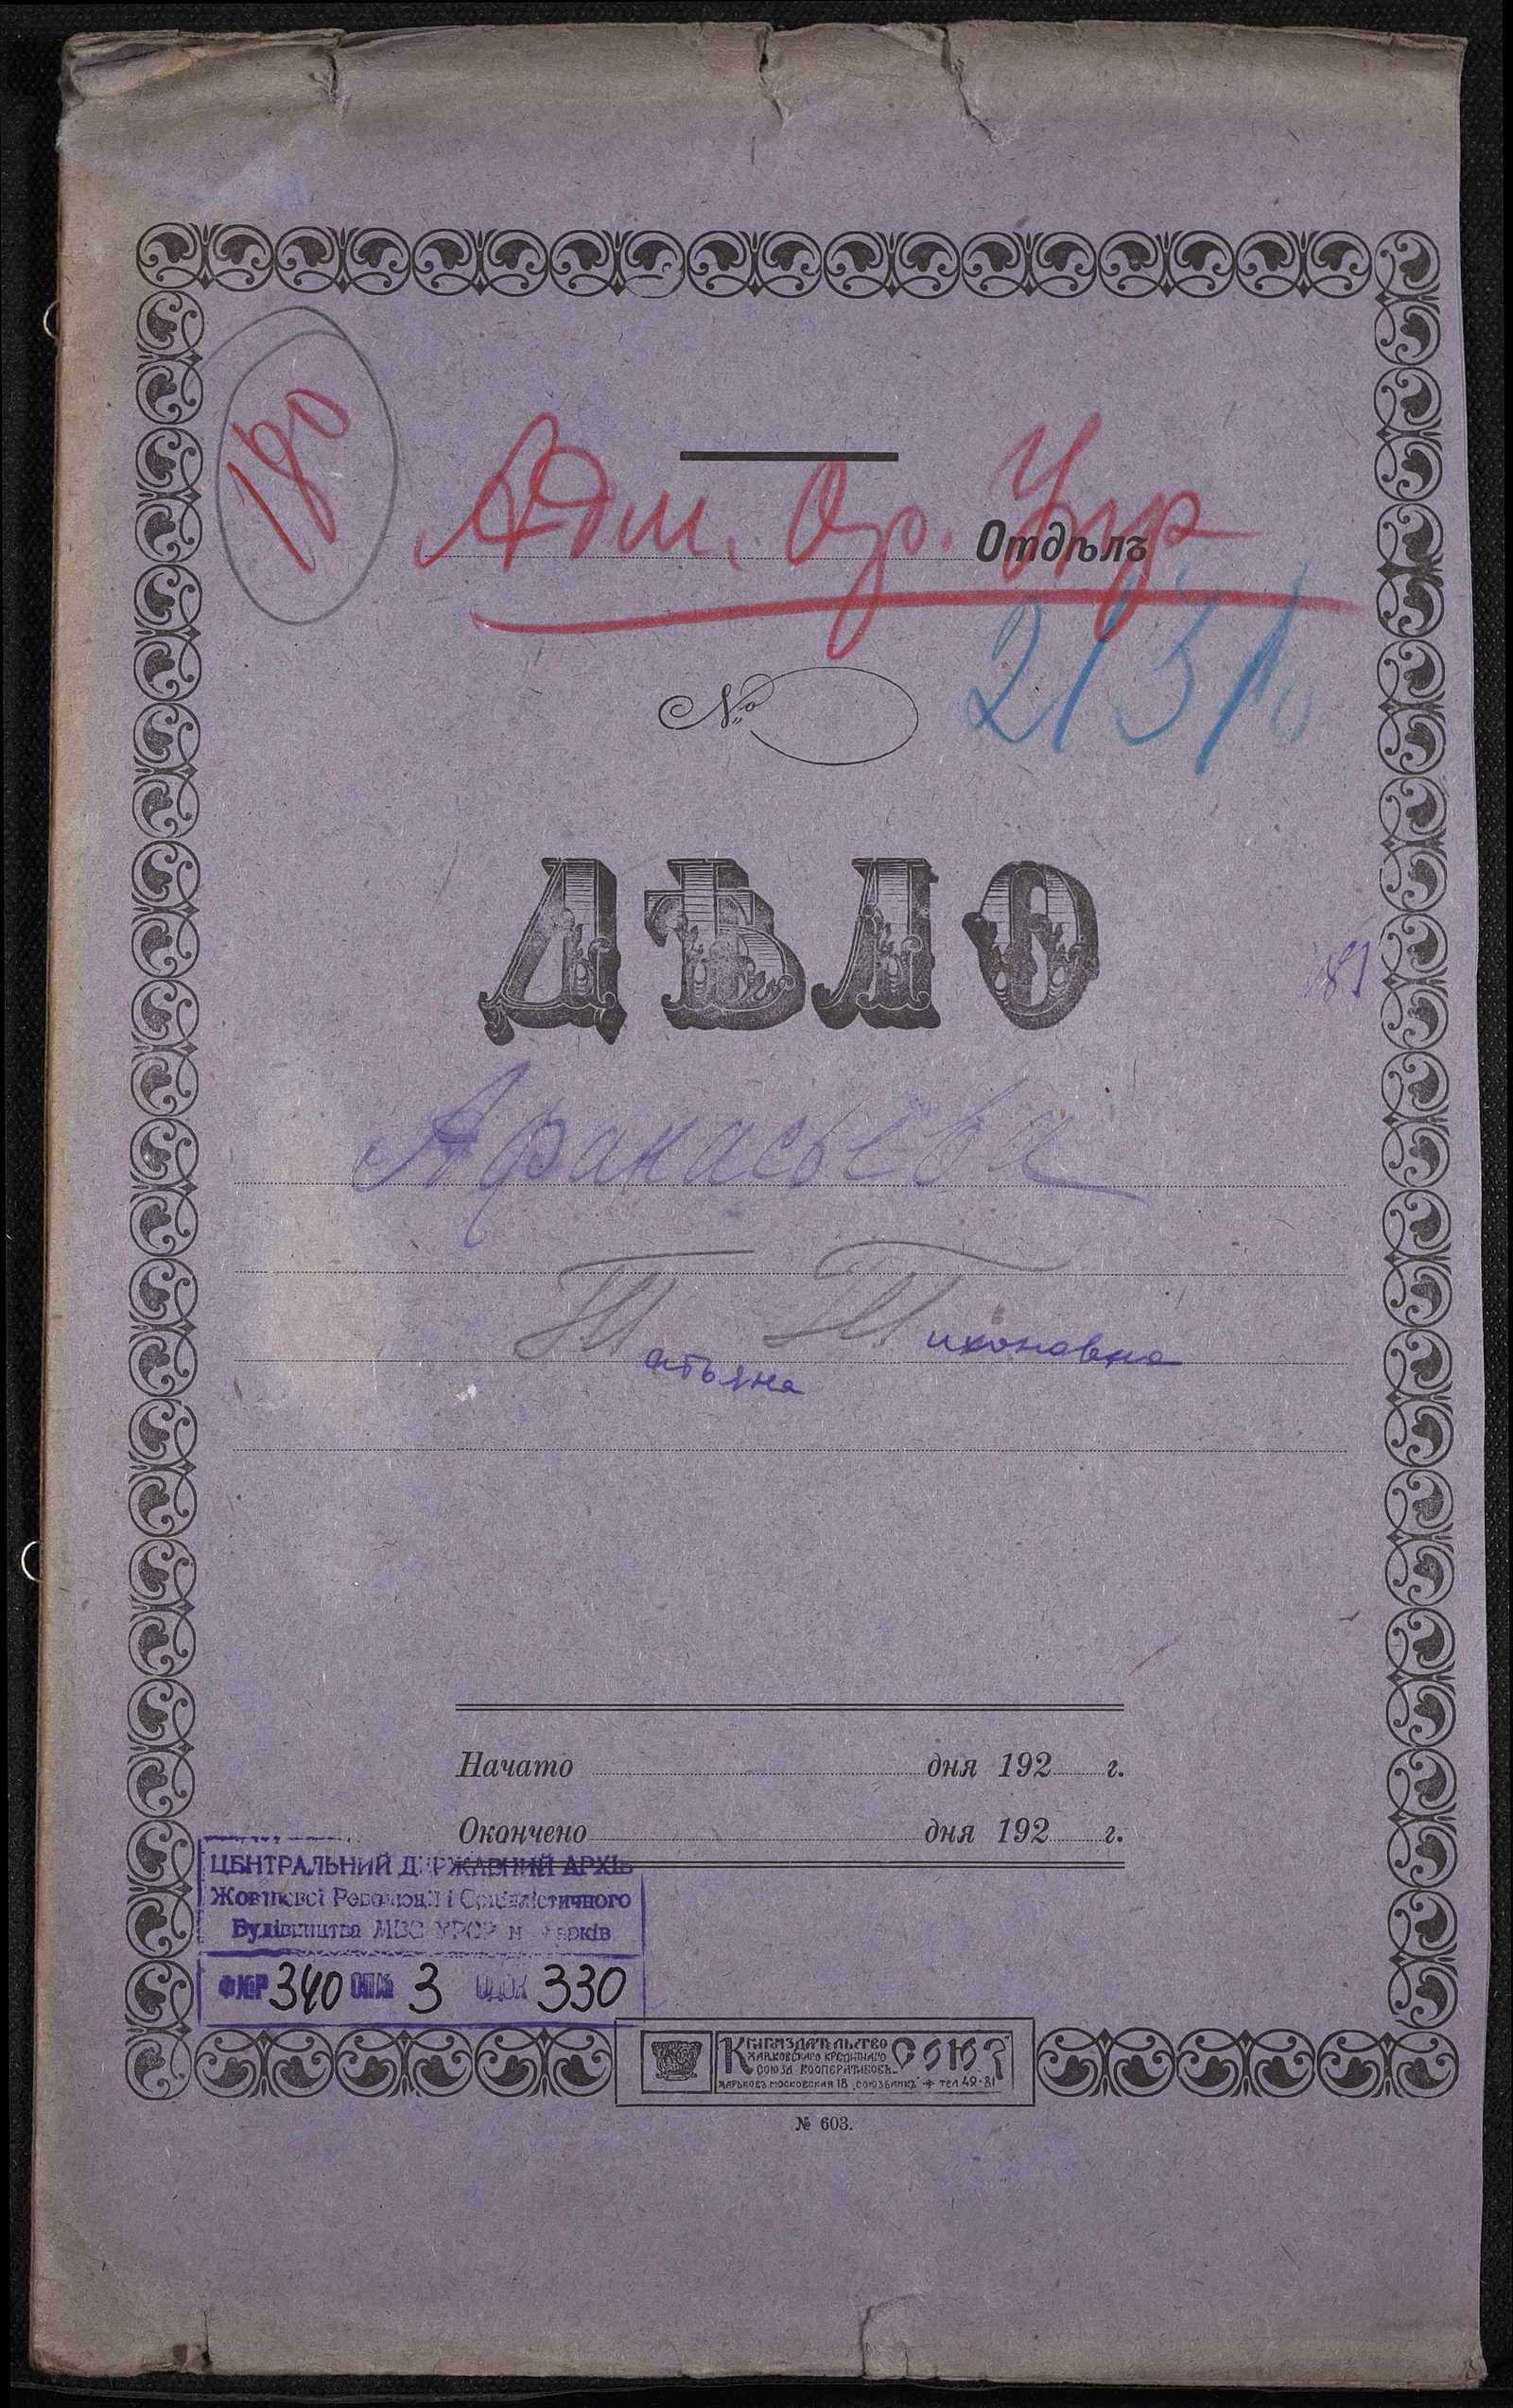 180
Адм. Ор. Упр
Отдѣлъ
№
ДѢЛО
181
Афанасьева
Татьяна Тихоновна
Начато дня 192 г.
Окончено дня 192 г.
ЦЕНТРАЛЬНИЙ ДЕРЖАВНИЙ АРХІВ
Жовтневої Революції і Соціалістичного
Будівництва МВС УРСР м. Харків
Ф№Р 340 ОП№ 3 ОД.ЗБ 330
КНИГОИЗДАТЕЛЬСТВО СОЮЗ
ХАРЬКОВСКАГО КРЕДИТНАГО
СОЮЗА КООПЕРАТИВОВЪ
ХАРЬКОВЪ МОСКОВСКАЯ 18 „СОЮЗБАНКЪ" ТЕЛ 42-81
№ 603.